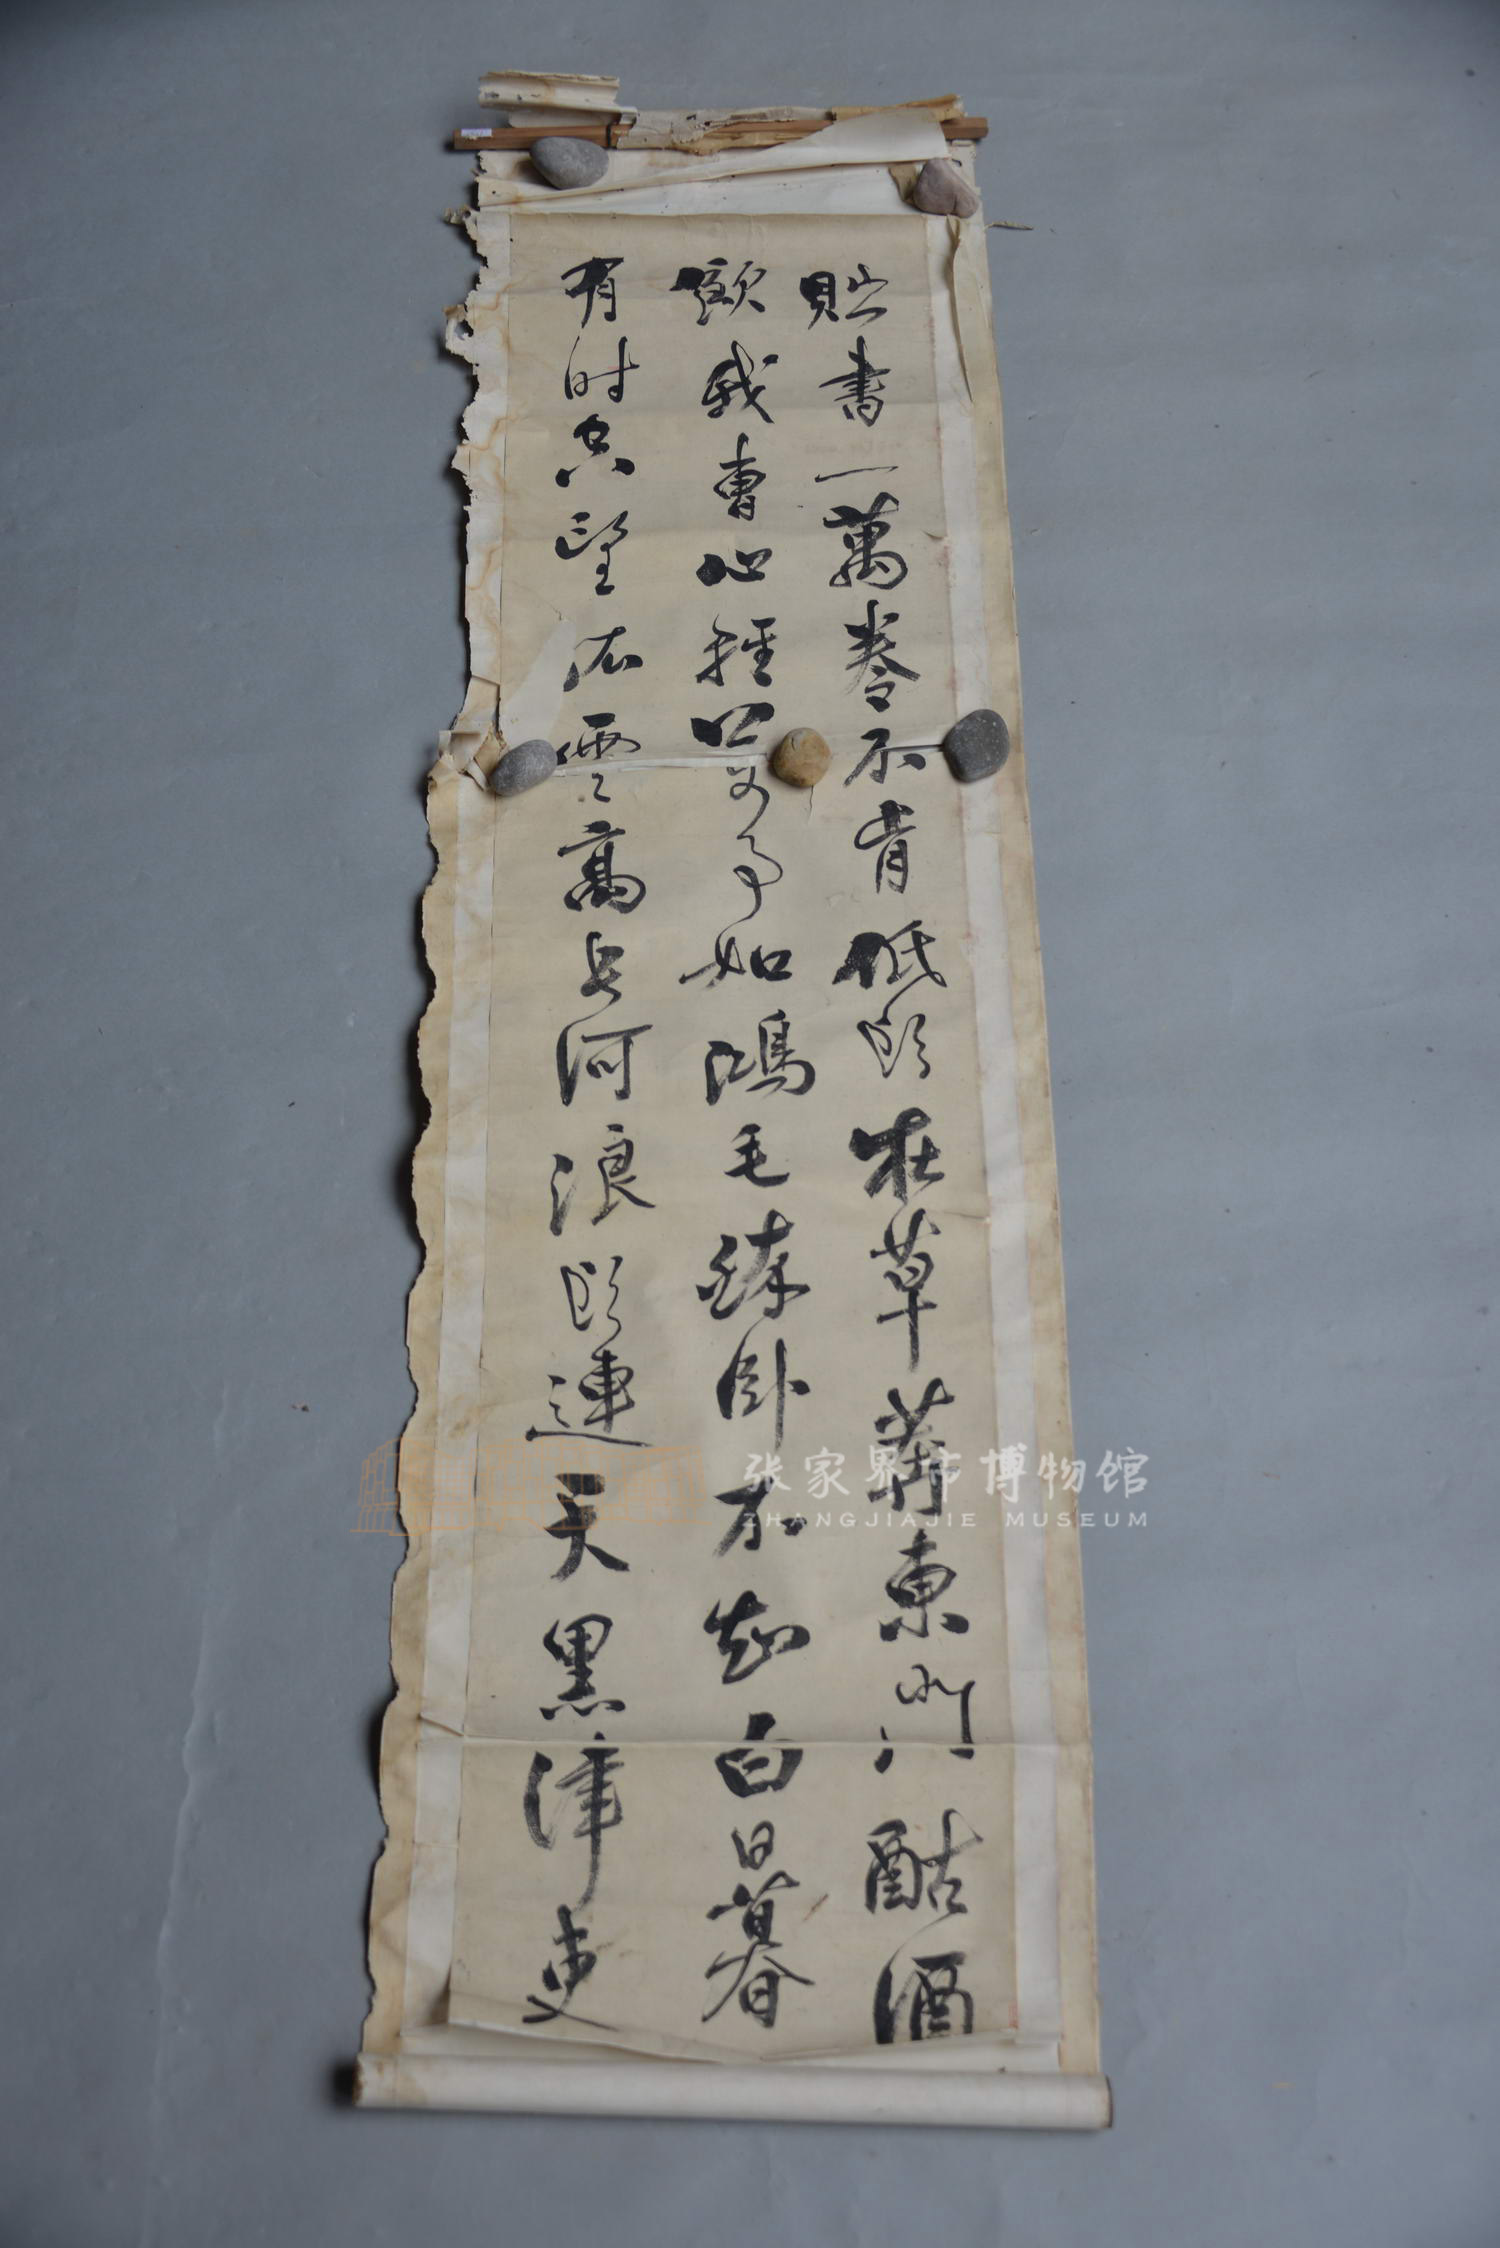 貯書一萬卷不肯低頭在草莽東門酤酒
飲我曹心輕萬事如鴻毛醉卧不知白日暮
有时空望孤雲高長河浪頭連天黑津吏
张家界市博物馆
ZHANGJIAJIE MUSEUM